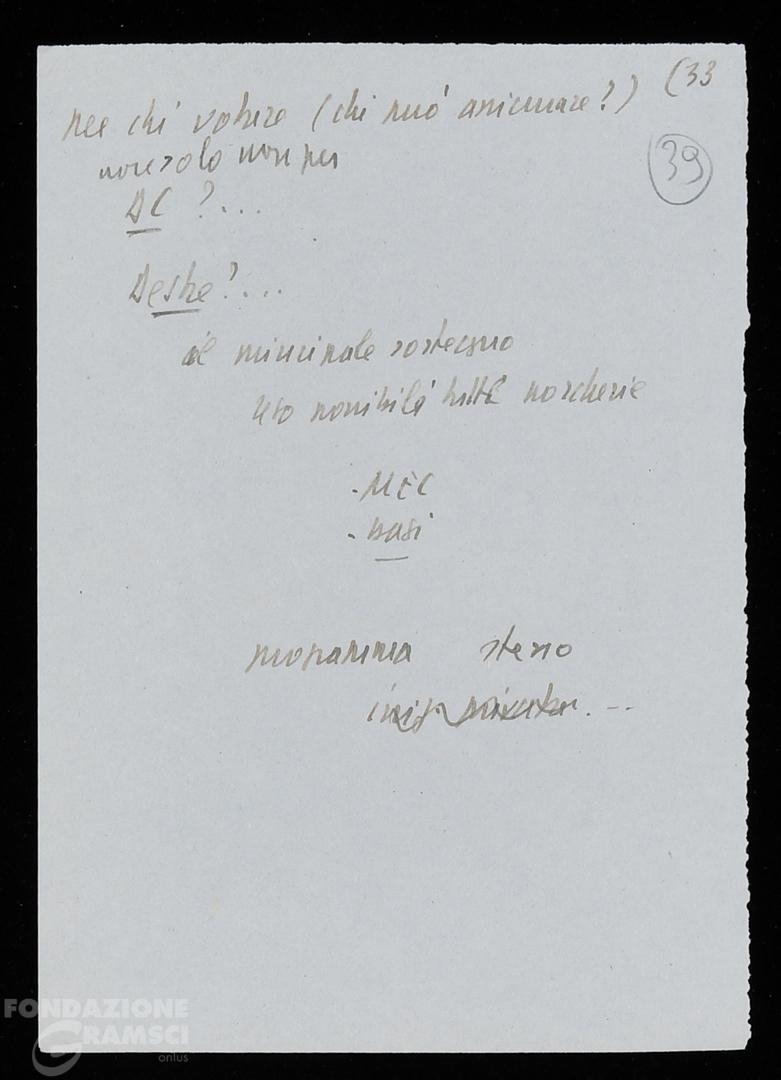 (33
per chi votare (chi può assicurare?)
39
non solo non per
DC ?...
Destre ?...
il principale sostegno
reso possibile tutte porcherie
- MEC
- basi
programma stesso
iniz. privata. --
FONDAZIONE
GRAMSCI
onlus